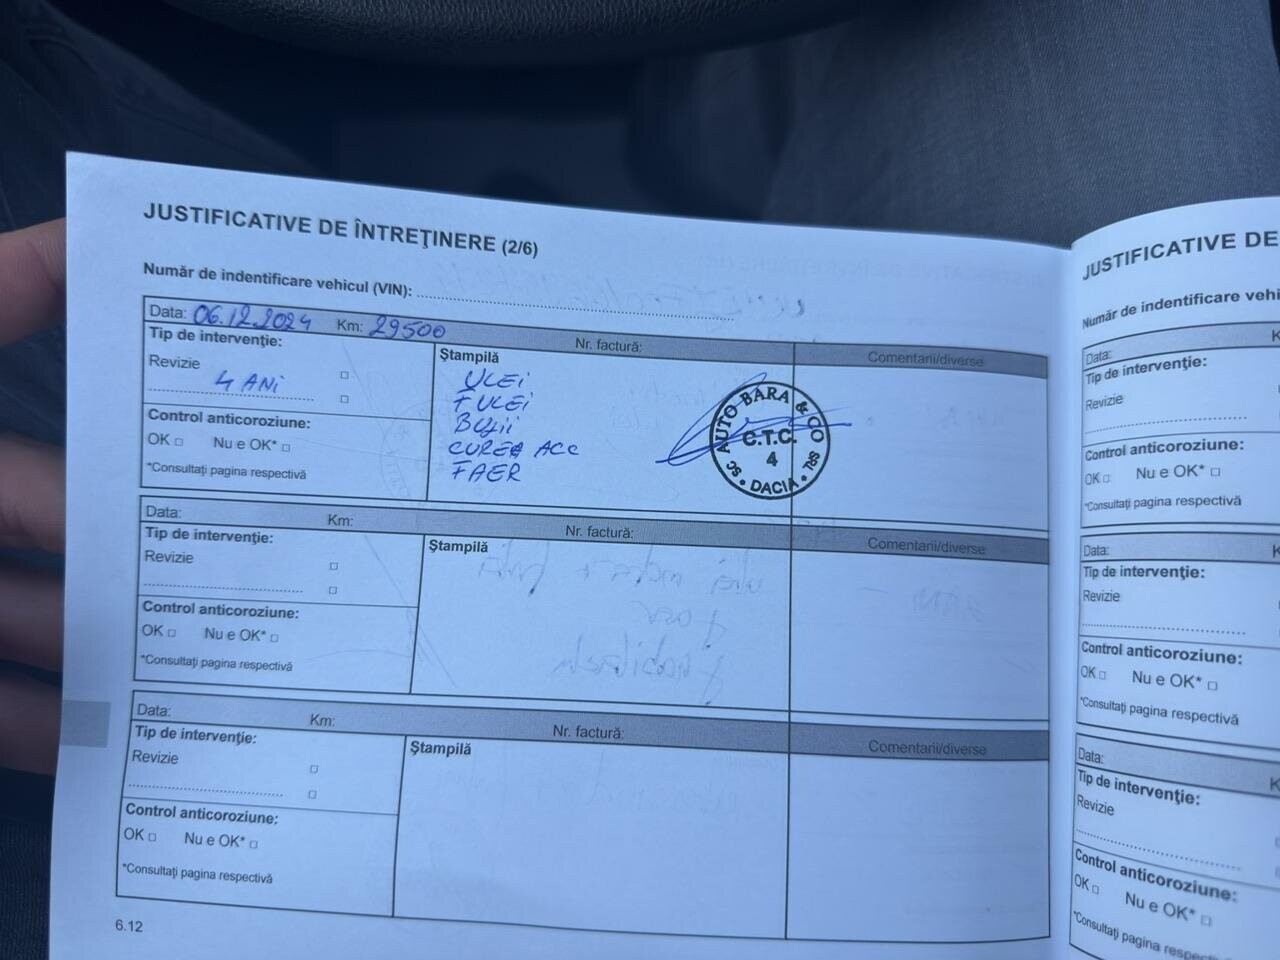 JUSTIFICATIVE DE ÎNTREŢINERE (2/6)
Număr de indentificare vehicul (VIN):
Data: 06.12.2024 Km: 29500 Nr. factură: Comentarii/diverse
Tip de intervenţie:
Revizie
4 ANi
Control anticoroziune:
OK Nu e OK*
*Consultaţi pagina respectivă
Ştampilă
ULEi
F ULEi
BUJii
CUREA ACC
F AER
SC AUTO BARA & CO SRL
C.T.C.
4
DACIA
Data: Km: Nr. factură: Comentarii/diverse
Tip de intervenţie:
Revizie
Control anticoroziune:
OK Nu e OK*
*Consultaţi pagina respectivă
Ştampilă
Data: Km: Nr. factură: Comentarii/diverse
Tip de intervenţie:
Revizie
Control anticoroziune:
OK Nu e OK*
*Consultaţi pagina respectivă
Ştampilă
6.12
JUSTIFICATIVE DE
Număr de indentificare vehi
Data: K
Tip de intervenţie:
Revizie
Control anticoroziune:
OK Nu e OK*
*Consultaţi pagina respectivă
Data: K
Tip de intervenţie:
Revizie
Control anticoroziune:
OK Nu e OK*
*Consultaţi pagina respectivă
Data: K
Tip de intervenţie:
Revizie
Control anticoroziune:
OK Nu e OK*
*Consultaţi pagina respec